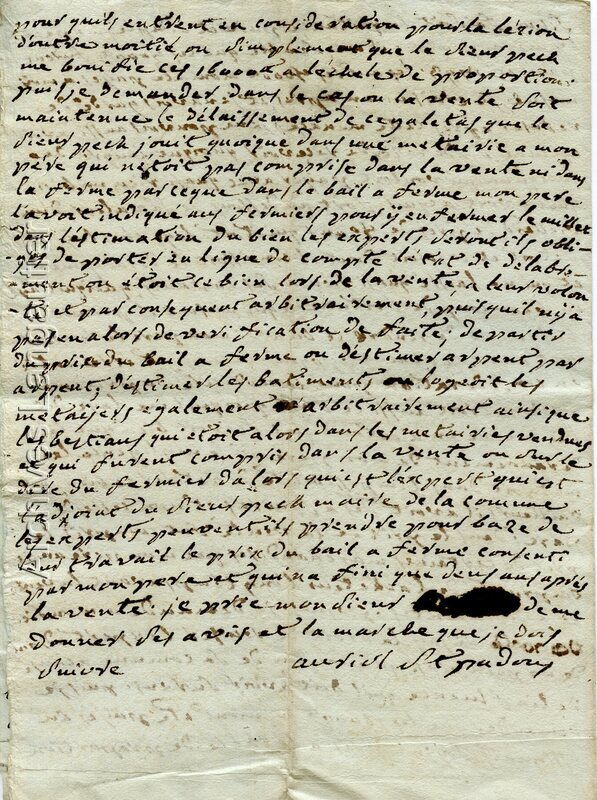 pour quils entrent en consideration pour la lezion
doutre moitié ou simplement que le sieur pech
me bonifie ces 16000 a léchele de proportion
puisje demander dans le cas ou la vente soit
maintenue le délaissement de ce galetas que le
sieur pech jouit quoique dans une metairie a mon
pére qui nétoit pas comprise dans la vente ni dans
la ferme parceque dans le bail a ferme mon pere
lavoit indiqué aus fermiers pour ij enfermer le millet
léstimation du bien les experts seront ils obli-
-gés de porter en ligne de compte létat de délabre-
-ment ou étoit ce bien lors de la vente a leur volon-
-té et par consequent arbitrairement, puisquil nija
pas en alors de verification de faite; de partir
du prix du bail a ferme ou déstimer arpent par
arpent, déstimer les batiments, ou les
metaijers également arbitrairement ainsique
les bestiaus qui étoit alors dans les metairies vendues
et qui furent compris dans la vente ou sur le
dire du fermier dalors qui est léxpert qui est
ladjoint du sieur pech maire de la comune
les experts peuvent ils prendre pour baze de
leur travail le prix du bail a ferme consenti
par mon pere et qui na fini que deus ans aprés
la vente. je prie monsieur de me
donner ses avis et la marche que je dois
suivre auriol St padous
Archives